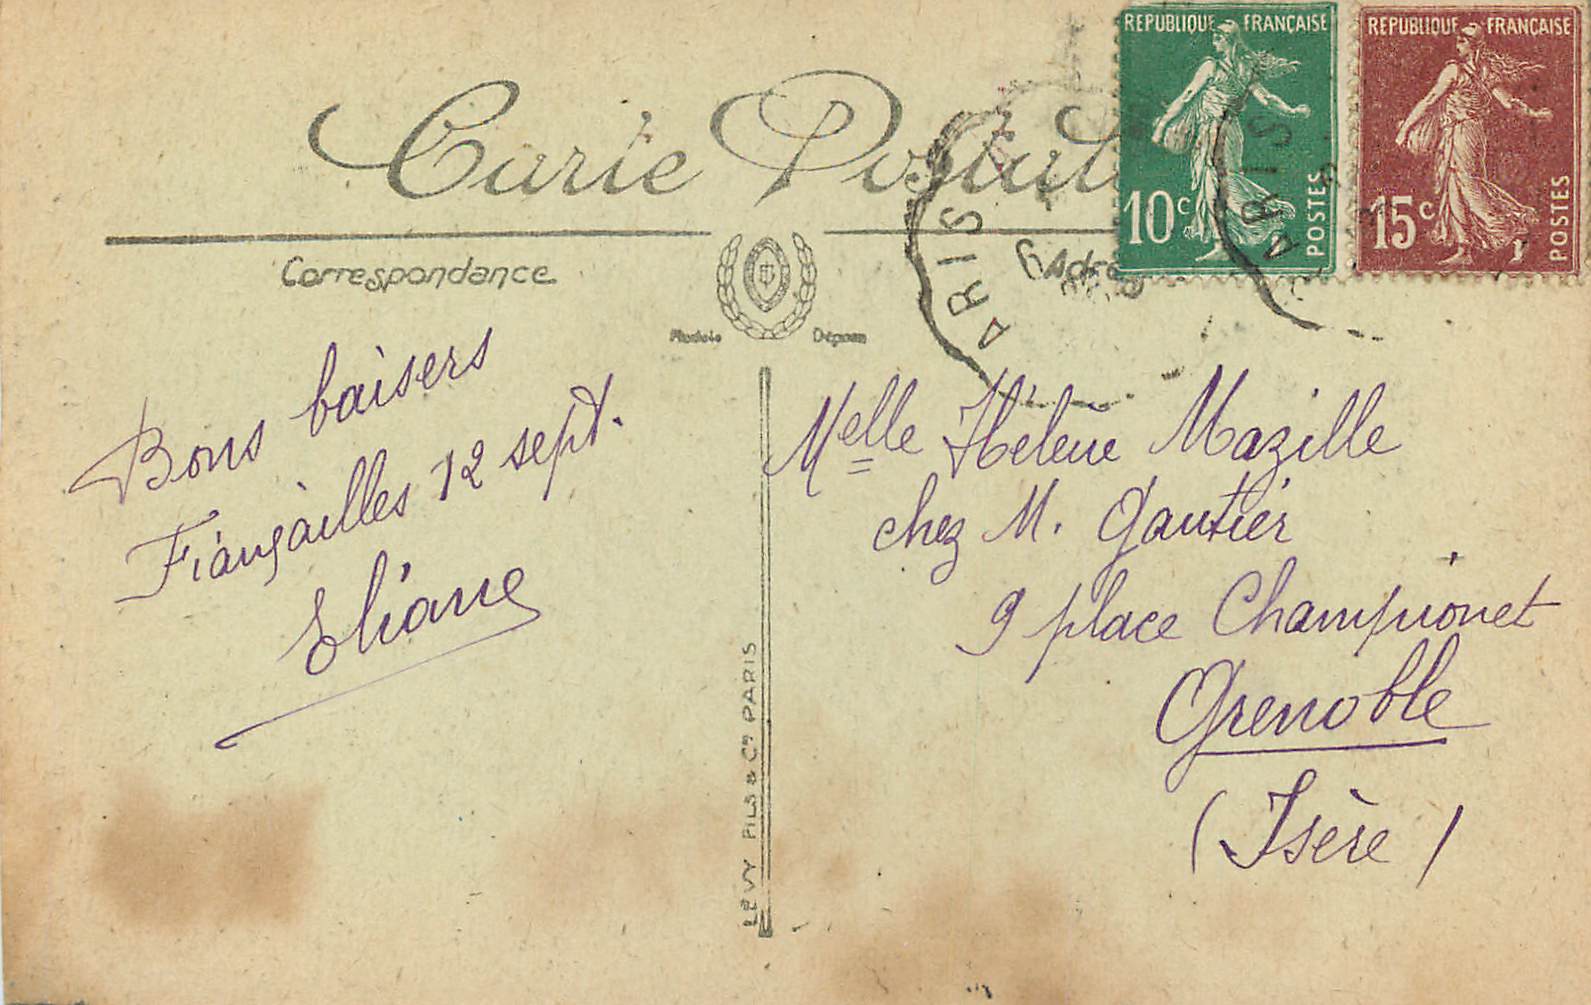 REPUBLIQUE FRANÇAISE
10c
POSTES
REPUBLIQUE FRANÇAISE
15c
POSTES
Carte Postale
PARIS
PARIS
Correspondance
Modèle Déposé
Bons baisers
Fiançailles 12 sept.
Eliane
LÉVY FILS & Cie PARIS
Melle Hélène Mazille
chez M. Gautier
9 place Championet
Grenoble
(Isère)